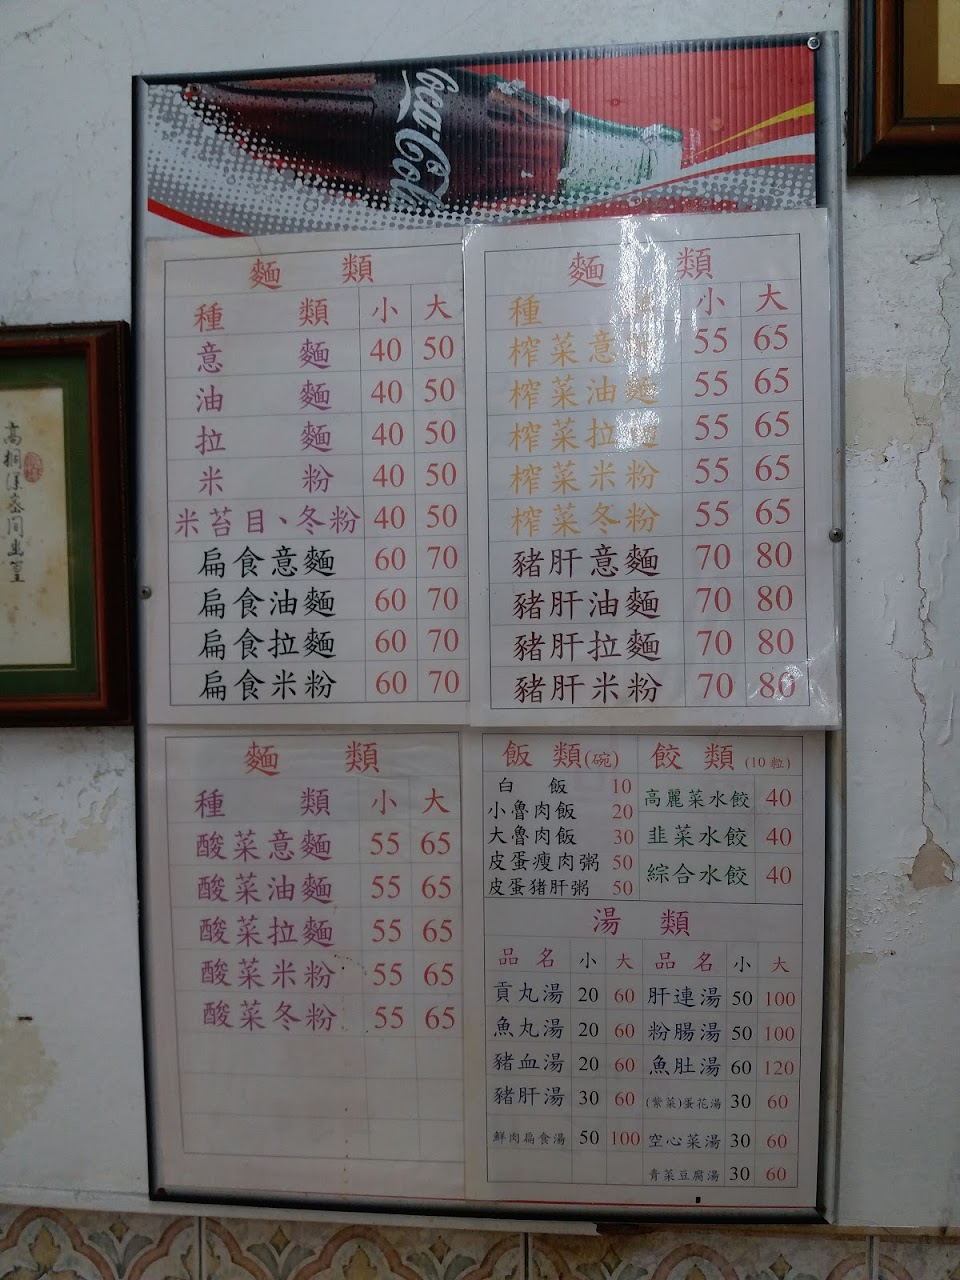 Coca-Cola
麵 類
種 類 小 大
意 麵 40 50
油 麵 40 50
拉 麵 40 50
米 粉 40 50
米苔目、冬粉 40 50
扁食意麵 60 70
扁食油麵 60 70
扁食拉麵 60 70
扁食米粉 60 70
麵 類
種 類 小 大
榨菜意麵 55 65
榨菜油麵 55 65
榨菜拉麵 55 65
榨菜米粉 55 65
榨菜冬粉 55 65
豬肝意麵 70 80
豬肝油麵 70 80
豬肝拉麵 70 80
豬肝米粉 70 80
麵 類
種 類 小 大
酸菜意麵 55 65
酸菜油麵 55 65
酸菜拉麵 55 65
酸菜米粉 55 65
酸菜冬粉 55 65
飯 類(碗)
白 飯 10
小魯肉飯 20
大魯肉飯 30
皮蛋瘦肉粥 50
皮蛋猪肝粥 50
餃 類 (10粒)
高麗菜水餃 40
韭菜水餃 40
綜合水餃 40
湯 類
品 名 小 大 品 名 小 大
貢丸湯 20 60 肝連湯 50 100
魚丸湯 20 60 粉腸湯 50 100
豬血湯 20 60 魚肚湯 60 120
豬肝湯 30 60 (紫菜)蛋花湯 30 60
鮮肉扁食湯 50 100 空心菜湯 30 60
青菜豆腐湯 30 60